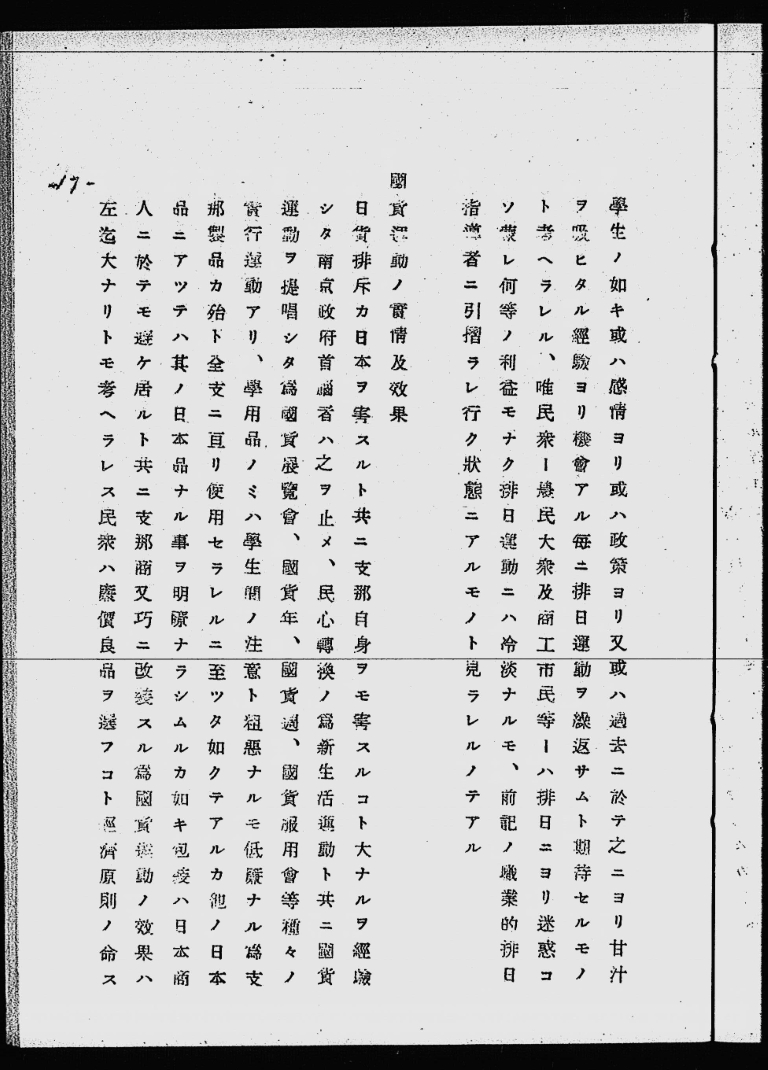 學生ノ如キ或ハ感情ヨリ或ハ政策ヨリ又或ハ過去ニ於テ之ニヨリ甘汁
ヲ吸ヒタル經驗ヨリ機會アル每ニ排日運動ヲ繰返サムト期待セルモノ
ト考ヘラレル、唯民衆ー農民大衆及商工市民等ーハ排日ニヨリ迷惑コ
ソ蒙レ何等ノ利益モナク排日運動ニハ冷淡ナルモ、前記ノ職業的排日
指導者ニ引摺ラレ行ク狀態ニアルモノト見ラレルノテアル
國貨運動ノ實情及效果
日貨排斥カ日本ヲ害スルト共ニ支那自身ヲモ害スルコト大ナルヲ經驗
シタ南京政府首腦者ハ之ヲ止メ、民心轉換ノ爲新生活運動ト共ニ國貨
運動ヲ提唱シタ爲國貨展覽會、國貨年、國貨週、國貨服用會等種々ノ
實行運動アリ、學用品ノミハ學生間ノ注意ト粗惡ナルモ低廉ナル爲支
那製品カ殆ト全支ニ亘リ使用セラレルニ至ツタ如クテアルカ他ノ日本
品ニアツテハ其ノ日本品ナル事ヲ明瞭ナラシムルカ如キ包裝ハ日本商
人ニ於テモ避ケ居ルト共ニ支那商又巧ニ改裝スル爲國貨運動ノ效果ハ
左迄大ナリトモ考ヘラレス民衆ハ廉價良品ヲ選フコト經濟原則ノ命ス
-17-